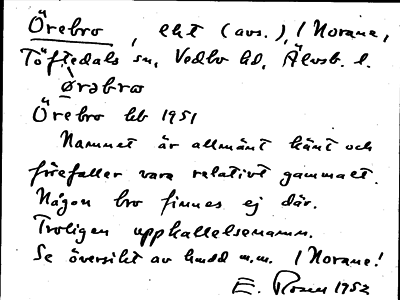 Örebro, lht (avs.), i Norane,
Töftedals sn, Vedbo hd, Älvsb. l.
ö̀rəbrω
Örebro hb 1951
Namnet är allmänt känt och
förefaller vara relativt gammalt.
Någon bro finnes ej där.
Troligen uppkallelsenamn.
Se översikt av hmd m.m. i Norane!
E. Rosén 1952